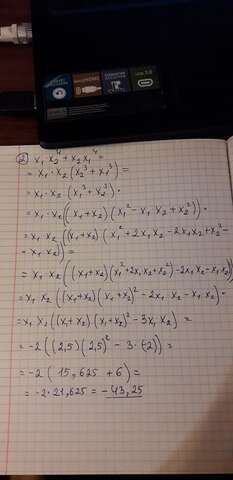 USB 3.0
② x₁x₂⁴ + x₂x₁⁴ =
= x₁ · x₂ (x₂³ + x₁³) =
= x₁ · x₂ · (x₁³ + x₂³) ·
= x₁ · x₂ ((x₁+x₂)(x₁² - x₁x₂ + x₂²)) ·
= x₁ x₂ ((x₁+x₂)(x₁² + 2x₁x₂ - 2x₁x₂ + x₂² -
- x₁x₂)) =
= x₁ · x₂ ((x₁+x₂)(x₁²+2x₁x₂+x₂²) - 2x₁x₂ - x₁x₂)) =
= x₁ x₂ ((x₁+x₂)(x₁+x₂)² - 2x₁x₂ - x₁x₂) =
= x₁ x₂ ((x₁+x₂)(x₁+x₂)² - 3x₁x₂) =
= -2 ((2,5)(2,5)² - 3 · (-2)) =
= -2 (15,625 + 6) =
= -2 · 21,625 = -43,25